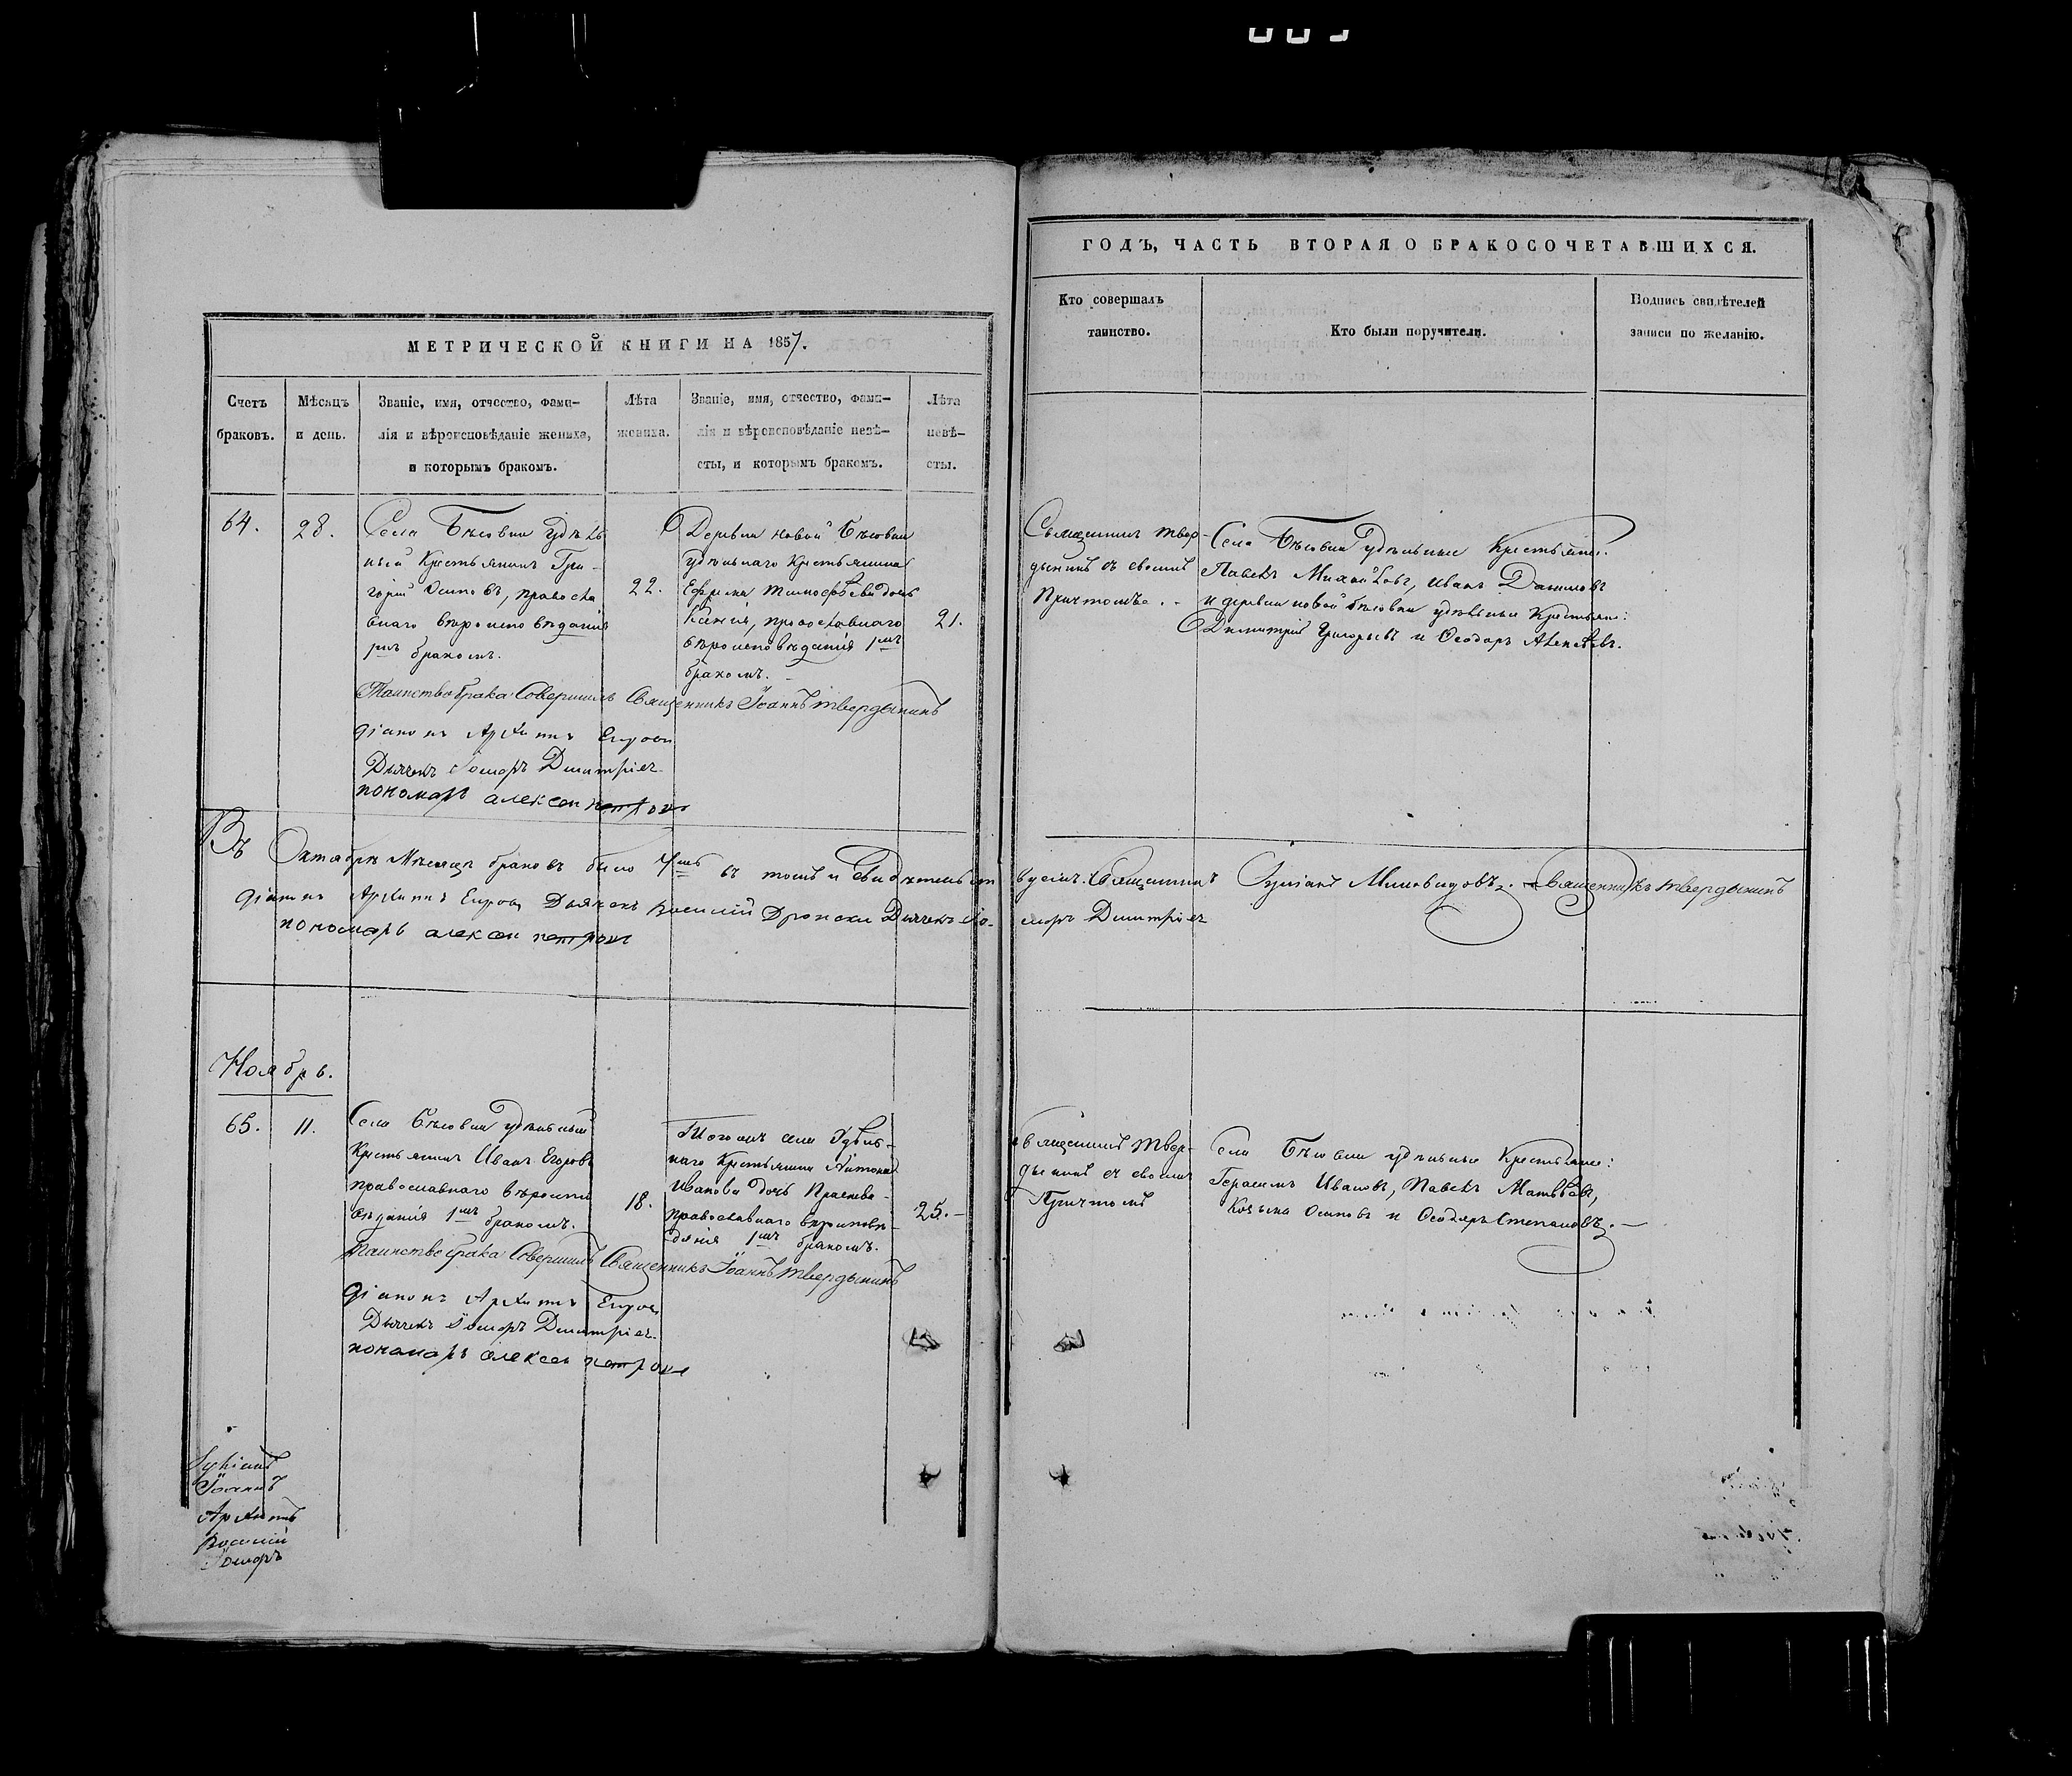 МЕТРИЧЕСКОЙ КНИГИ НА 1857.
Счетъ браковъ.
Мѣсяцъ и день.
Званіе, имя, отчество, фами-
лія и вѣроисповѣданіе жениха,
и которымъ бракомъ.
Лѣта жениха.
Званіе, имя, отчество, фами-
лія и вѣроисповѣданіе невѣ-
сты, и которымъ бракомъ.
Лѣта невѣ-
сты.
64.
28.
Села Бѣсовки удѣль
ный Крестьянинъ Гри-
горій Осиповъ, правосла
внаго вѣроисповѣданія
1мъ бракомъ.
22.
Деревни новой Бѣсовки
удѣльнаго Крестьянина
Ефрема Тимофѣева дочь
Ксенія, православнаго
вѣроисповѣданія 1мъ
бракомъ.
21.
Таинство брака Совершилъ Священникъ Іоаннъ Твердынинъ
Діаконъ Архипъ Егоровъ
Дьячекъ Димитріев
пономарь алексеи петров
Въ Октябрѣ Мѣсяцѣ браковъ было въ томъ и Свидѣтельст
діаконъ Архипъ Егоровъ Дьячекъ Василій Дьячекъ
пономарь алексеи петров
Ноябрь.
65.
11.
Села Бѣсовки удѣльный
Крестьянинъ Иванъ Егоровъ
православнаго вѣроиспо
вѣданія 1мъ бракомъ.
18.
Тогожъ села Удѣль-
наго Крестьянина Антона
Иванова дочь Прасковья
православнаго вѣроисповѣ-
данія 1мъ бракомъ.
25.
Таинство брака Совершилъ Священникъ Іоаннъ Твердынинъ
Діаконъ Архипъ Егоровъ
Дьячекъ Димитріев
пономарь алексеи петров
Іоаннъ
Архипъ
Василій
ГОДЪ, ЧАСТЬ ВТОРАЯ О БРАКОСОЧЕТАВШИХСЯ.
Кто совершалъ
таинство.
Кто были поручители.
Подпись свидѣтелей
записи по желанію.
Священникъ Твер-
дынинъ съ своимъ
Причтомъ.
Села Бѣсовки удѣльные Крестьяне:
Павелъ Михайловъ, Иванъ Даниловъ
и деревни новой бѣсовки удѣльные Крестьяне:
Димитрій Григорьевъ и Ѳеодоръ Алексѣевъ.
вуемъ: Священникъ Миловидовъ. Священникъ Твердынинъ
Димитріев
Священникъ Твер-
дынинъ съ своимъ
Причтомъ
Села Бѣсовки удѣльные Крестьяне:
Герасимъ Ивановъ, Павелъ Матвѣевъ,
Козьма Осиповъ и Ѳеодоръ Степановъ.